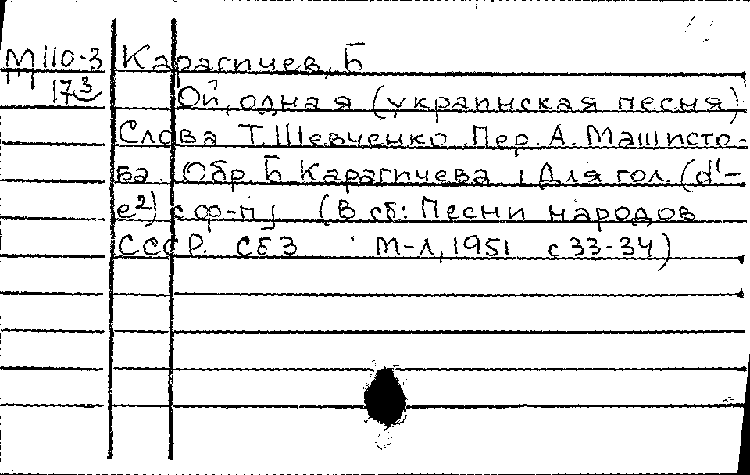 М110-3 Карагичев, Б
173 Ой, одна я (украинская песня)
Слова Т. Шевченко Пер. А. Машисто-
ва. Обр. Б Карагичева [Для гол. (d¹-
e²) с ф-п] (В сб: Песни народов
СССР. Сб 3 М-Л, 1951 с 33-34)